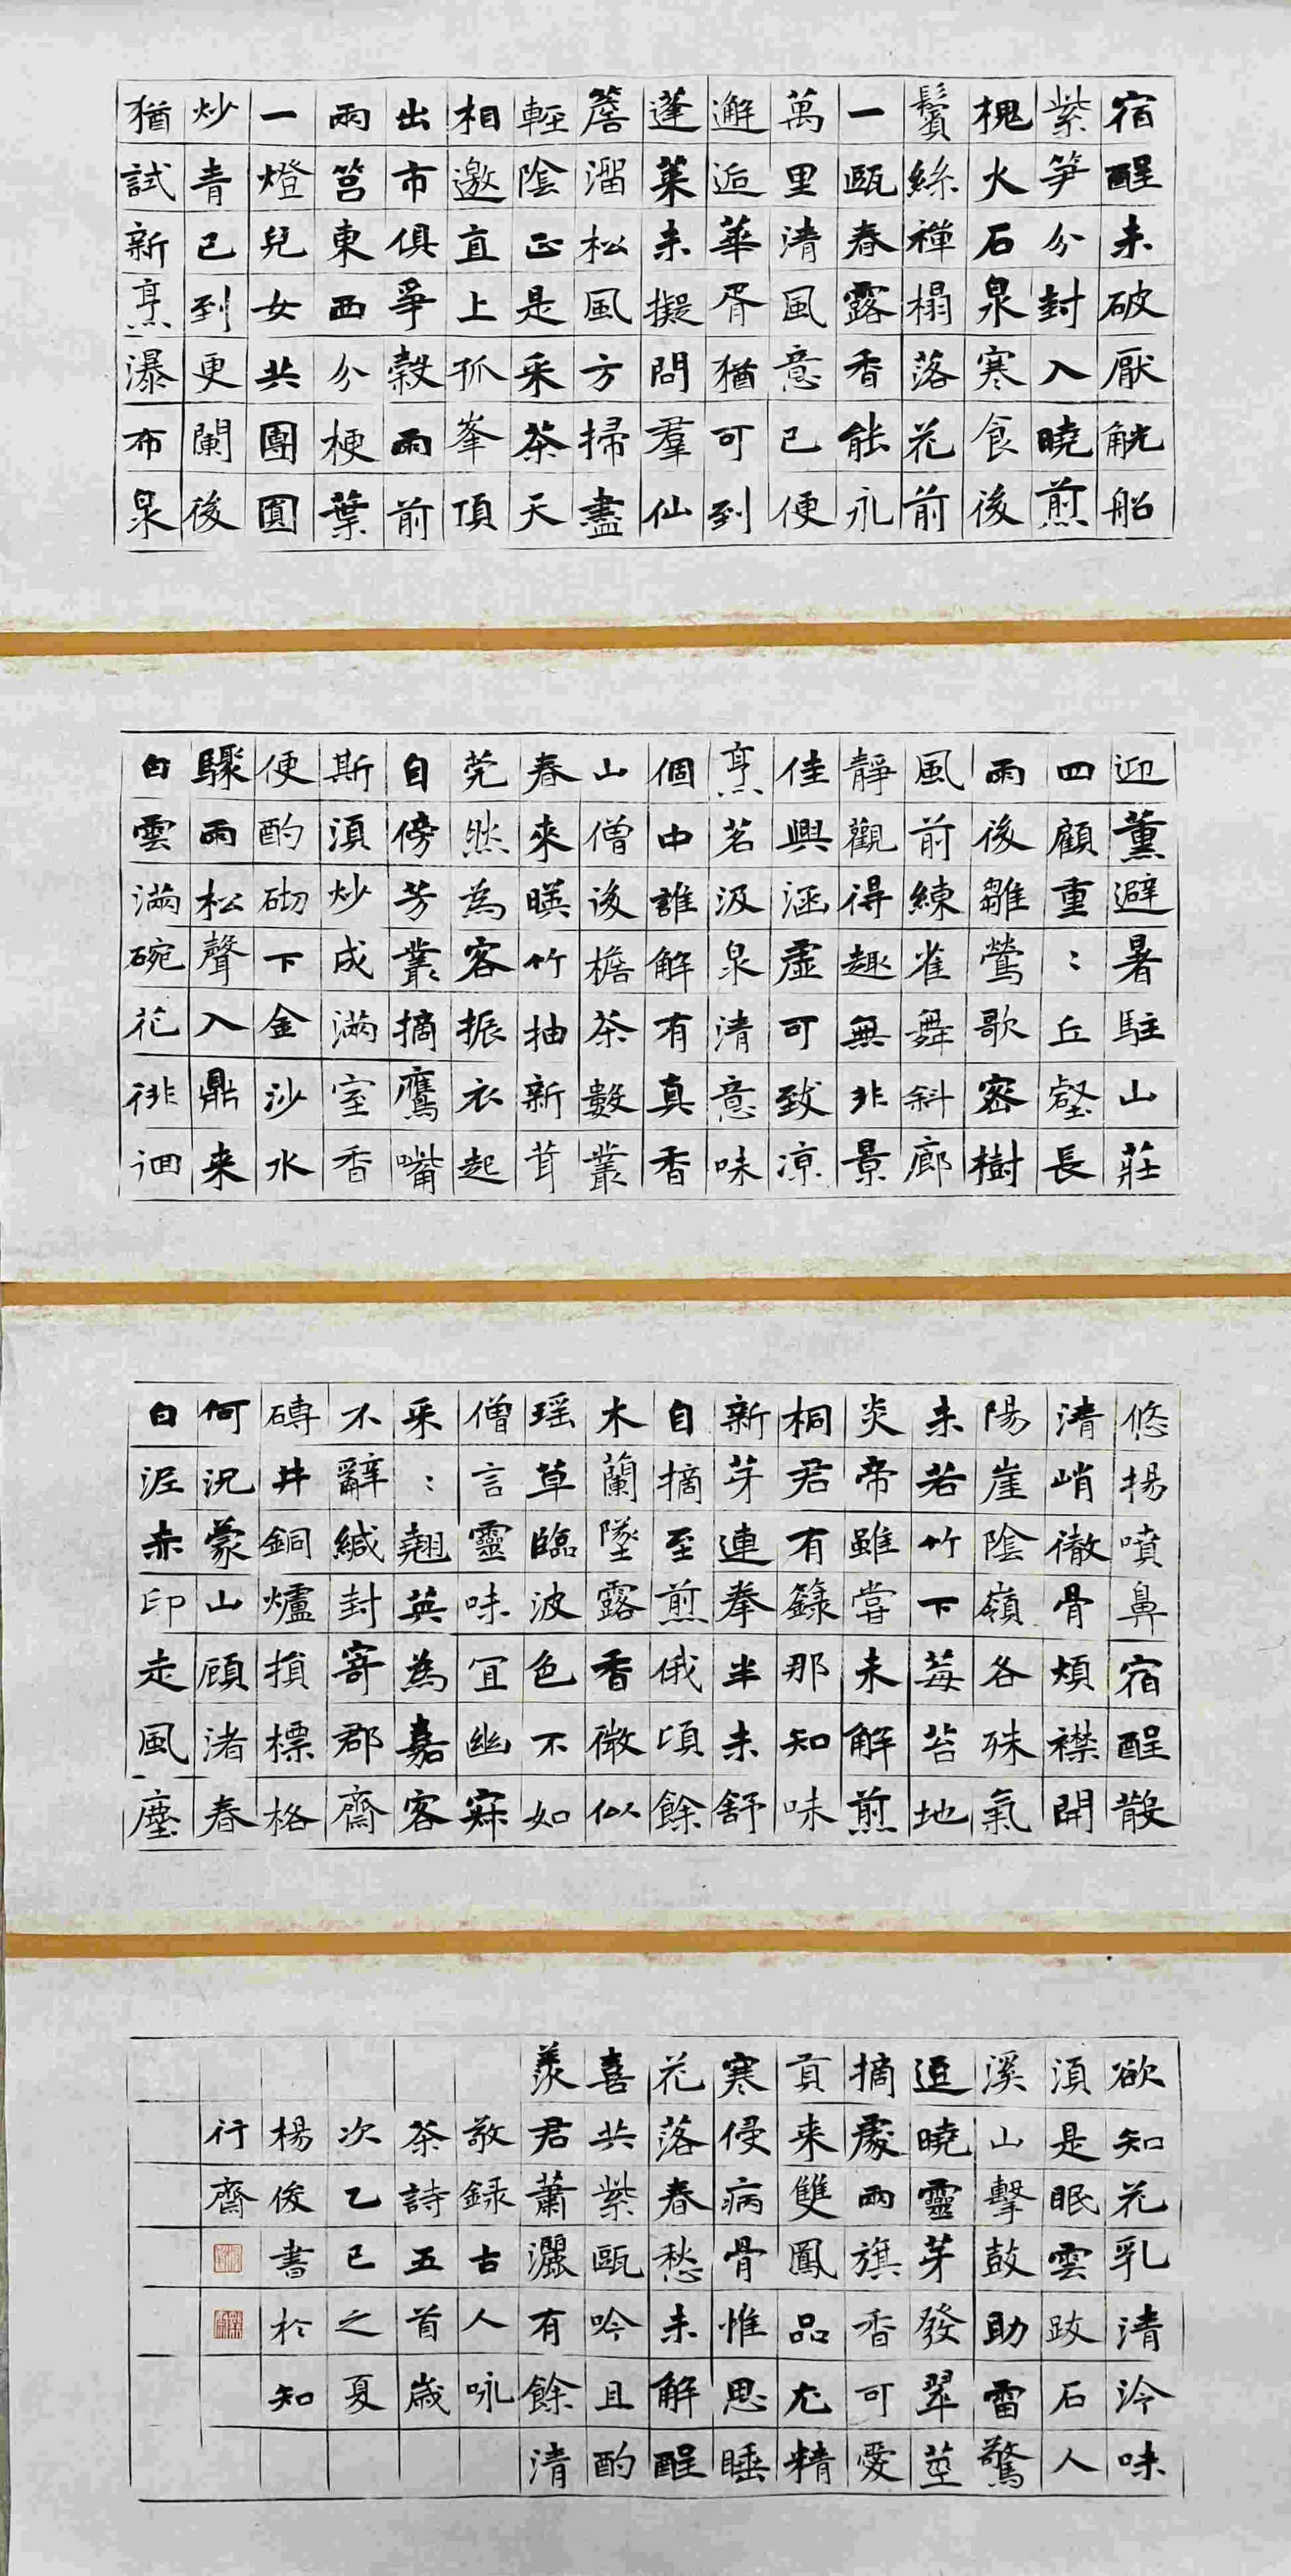 宿酲未破厭觥船
紫笋分封入曉煎
槐火石泉寒食後
鬢絲禪榻落花前
一甌春露香能永
萬里清風意已便
邂逅華胥猶可到
蓬萊未擬問羣仙
簷溜松風方掃盡
輕陰正是采茶天
相邀直上孤峯頂
出市俱爭穀雨前
兩筥東西分梗葉
一燈兒女共團圓
炒青已到更闌後
猶試新烹瀑布泉
迎薰避暑駐山莊
四顧重〻丘壑長
雨後雛鶯歌密樹
風前練雀舞斜廊
靜觀得趣無非景
佳興涵虛可致涼
烹茗汲泉清意味
個中誰解有真香
山僧後檐茶數叢
春來暎竹抽新茸
莞然為客振衣起
自傍芳叢摘鷹嘴
斯湏炒成滿室香
便酌砌下金沙水
驟雨松聲入鼎来
白雲滿碗花徘徊
悠揚噴鼻宿酲散
清峭徹骨煩襟開
陽崖陰嶺各殊氣
未若竹下莓苔地
炎帝雖嘗未解煎
桐君有籙那知味
新芽連拳半未舒
自摘至煎俄頃餘
木蘭墜露香微似
瑶草臨波色不如
僧言靈味宜幽寂
采〻翹英為嘉客
不辭緘封寄郡齋
磚井銅爐損標格
何況蒙山顧渚春
白泥赤印走風塵
欲知花乳清泠味
湏是眠雲跂石人
溪山擊鼓助雷驚
逗曉靈芽發翠莖
摘處兩旗香可愛
貢来雙鳳品尤精
寒侵病骨惟思睡
花落春愁未解酲
喜共紫甌吟且酌
羨君蕭灑有餘清
敬録古人咏
茶詩五首歲
次乙巳之夏
楊俊書於知
行齋